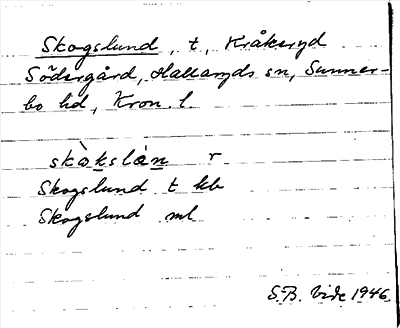 Skogslund, t, Kråkeryd
Södergård, Hallaryds sn, Sunner-
bo hd, Kron. l.
skòkslàn r
Skogslund t kb
Skogslund ml
S.-B. Vide 1946